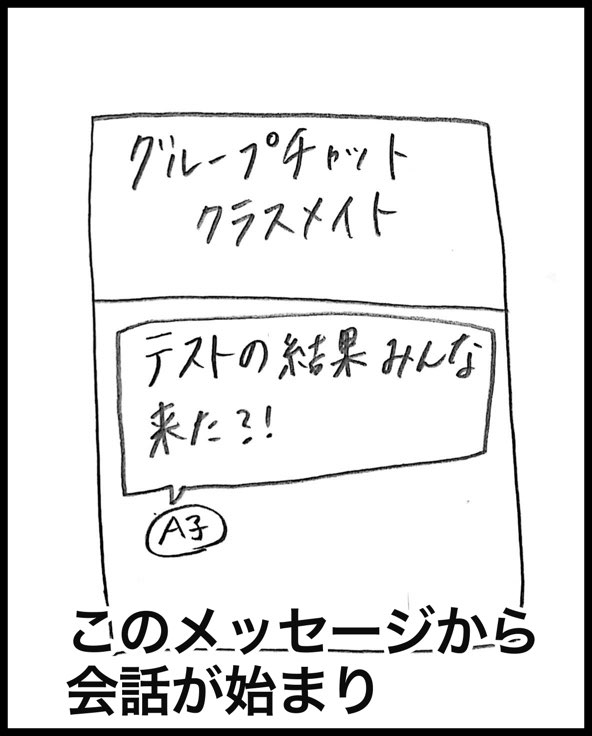 グループチャット
クラスメイト
テストの結果みんな
来た?!
A子
このメッセージから
会話が始まり